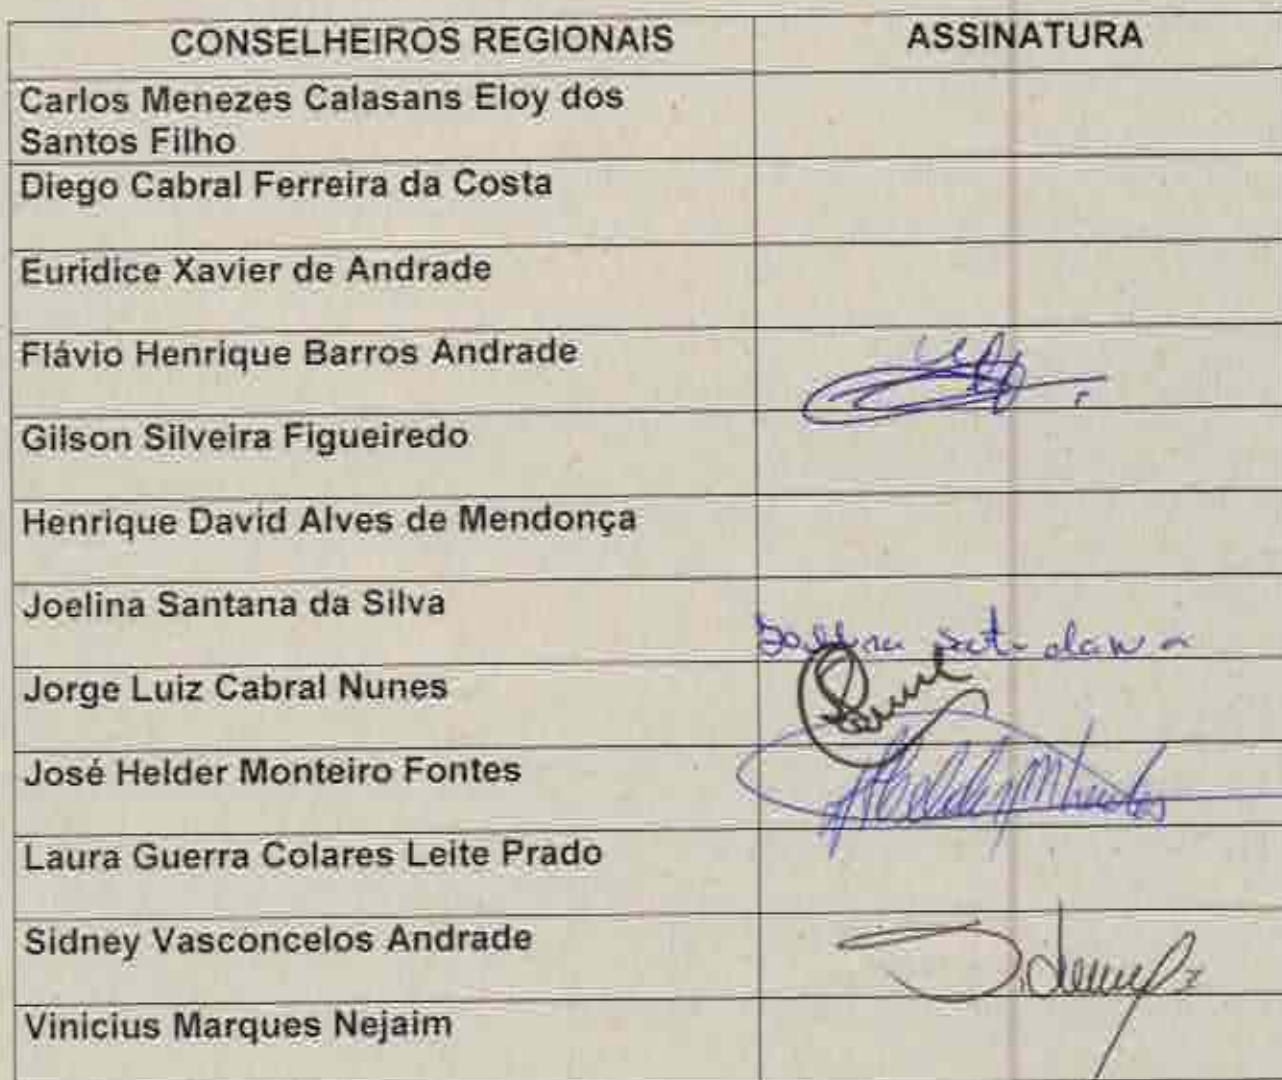 CONSELHEIROS REGIONAIS
ASSINATURA
Carlos Menezes Calasans Eloy dos
Santos Filho
Diego Cabral Ferreira da Costa
Eurídice Xavier de Andrade
Flávio Henrique Barros Andrade
Gilson Silveira Figueiredo
Henrique David Alves de Mendonça
Joelina Santana da Silva
Jorge Luiz Cabral Nunes
José Helder Monteiro Fontes
Laura Guerra Colares Leite Prado
Sidney Vasconcelos Andrade
Vinicius Marques Nejaim